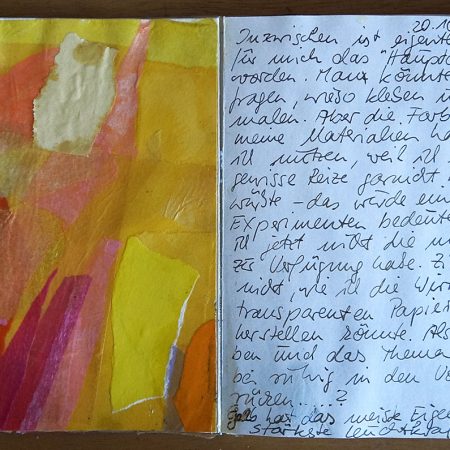 20.10
Inzwischen ist eigentl
für mich das "Haupt
worden. Man könnte
fragen, wieso kleben u
malen. Aber die Farb
meine Materialien ha
ich nutzen, weil ich
gewisse Reize garnicht
wüßte – das würde ein
Experimenten bedeute
ich jetzt nicht die
zur Verfügung habe. Z
nicht, wie ich die Wir
transparenten Papie
herstellen könnte. Als
ben und das Thema
be ruhig in den Vo
rücken.....?
Gelb hat das meiste Eige
stärkste Leuchtkra